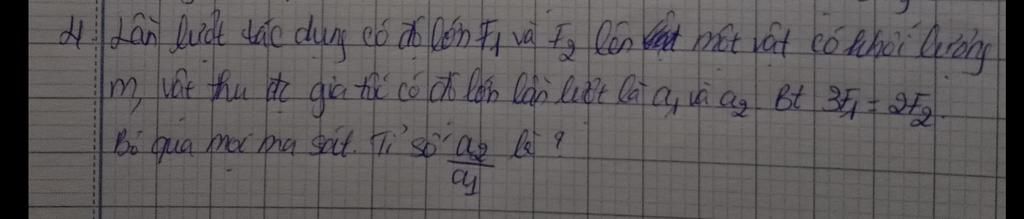 4. Lần lượt tác dụng có độ lớn F1 và F2 lên một vật có khối lượng
m, vật thu đc gia tốc có độ lớn lần lượt là a1 và a2. Bt 3F1 = 2F2.
Bỏ qua mọi ma sát. Tỉ số a2/a1 là ?